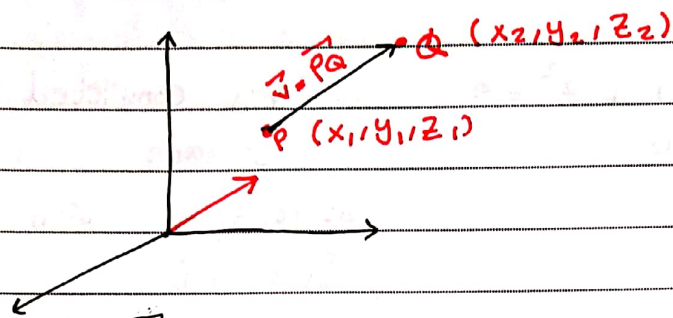 Q (x₂, y₂, z₂)
v⃗ = P⃗Q⃗
P (x₁, y₁, z₁)